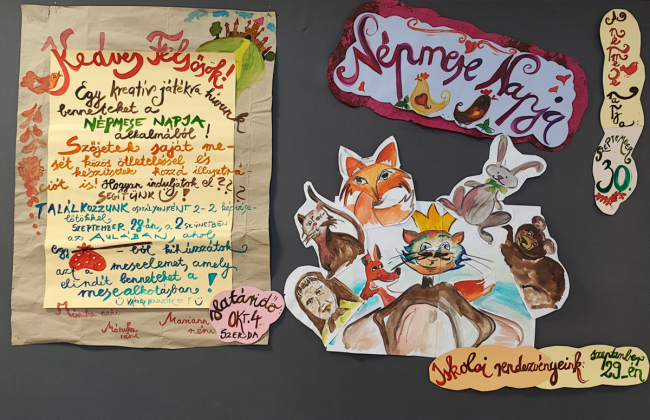 Kedves Felsősök!
Egy kreatív játékra hívunk
benneteket a
NÉPMESE NAPJA
alkalmából!
Szőjetek saját me-
sét közös ötleteléssel és
készítsetek hozzá illusztrá-
ciót is! Hogyan induljatok el??
SEGÍTÜNK!
TALÁLKOZZUNK osztályonként 2-2 képvise-
lőtökkel,
SZEPTEMBER 28-án, a 2. SZÜNETBEN
az AULÁBAN, ahol
egy ből kihúzzátok
azt a meseelemet, amely
elindít benneteket a
mesealkotásban!
Mónika néni
Mariann
néni
Leadandó
OKT. 4.
SZERDA
Népmese Napja
A népmese napja
SZEPTEMBER
30.
Iskolai rendezvényeink:
szeptember
29-én